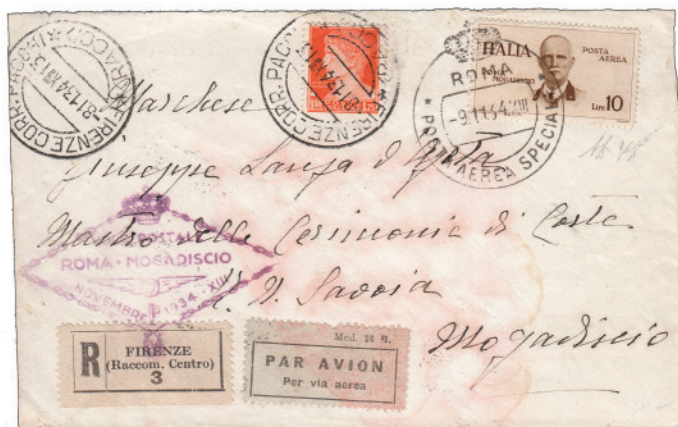 FIRENZE CORR. PACCHI
(RACC.)
-8.11.34.XIII 13
FIRENZE CORR. PACCHI
-8.11.34.XIII 13
ITALIA
POSTA
AEREA
ROMA
MOGADISCIO
Lire 10
ROMA
-9.11.34.XIII
* POSTA AEREA SPECIALE *
Marchese
Giuseppe Lanza d'
Mastro delle Cerimonie di Corte
Savoia
Mogadiscio
POSTALE
ROMA - MOGADISCIO
NOVEMBRE 1934 XIII
R
FIRENZE
(Raccom. Centro)
3
Mod. 24 R.
PAR AVION
Per via aerea